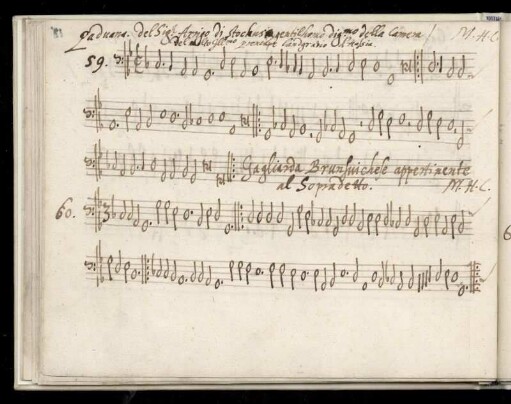 Paduana. del Sigr Arrigo di gentilhuomo digmo della Camera
del prencipe Landgravio d'Hassia.
M. H. L.
59.
Gagliarda Brunsuichese appertinente
al Sopradetto.
M. H. L.
60.